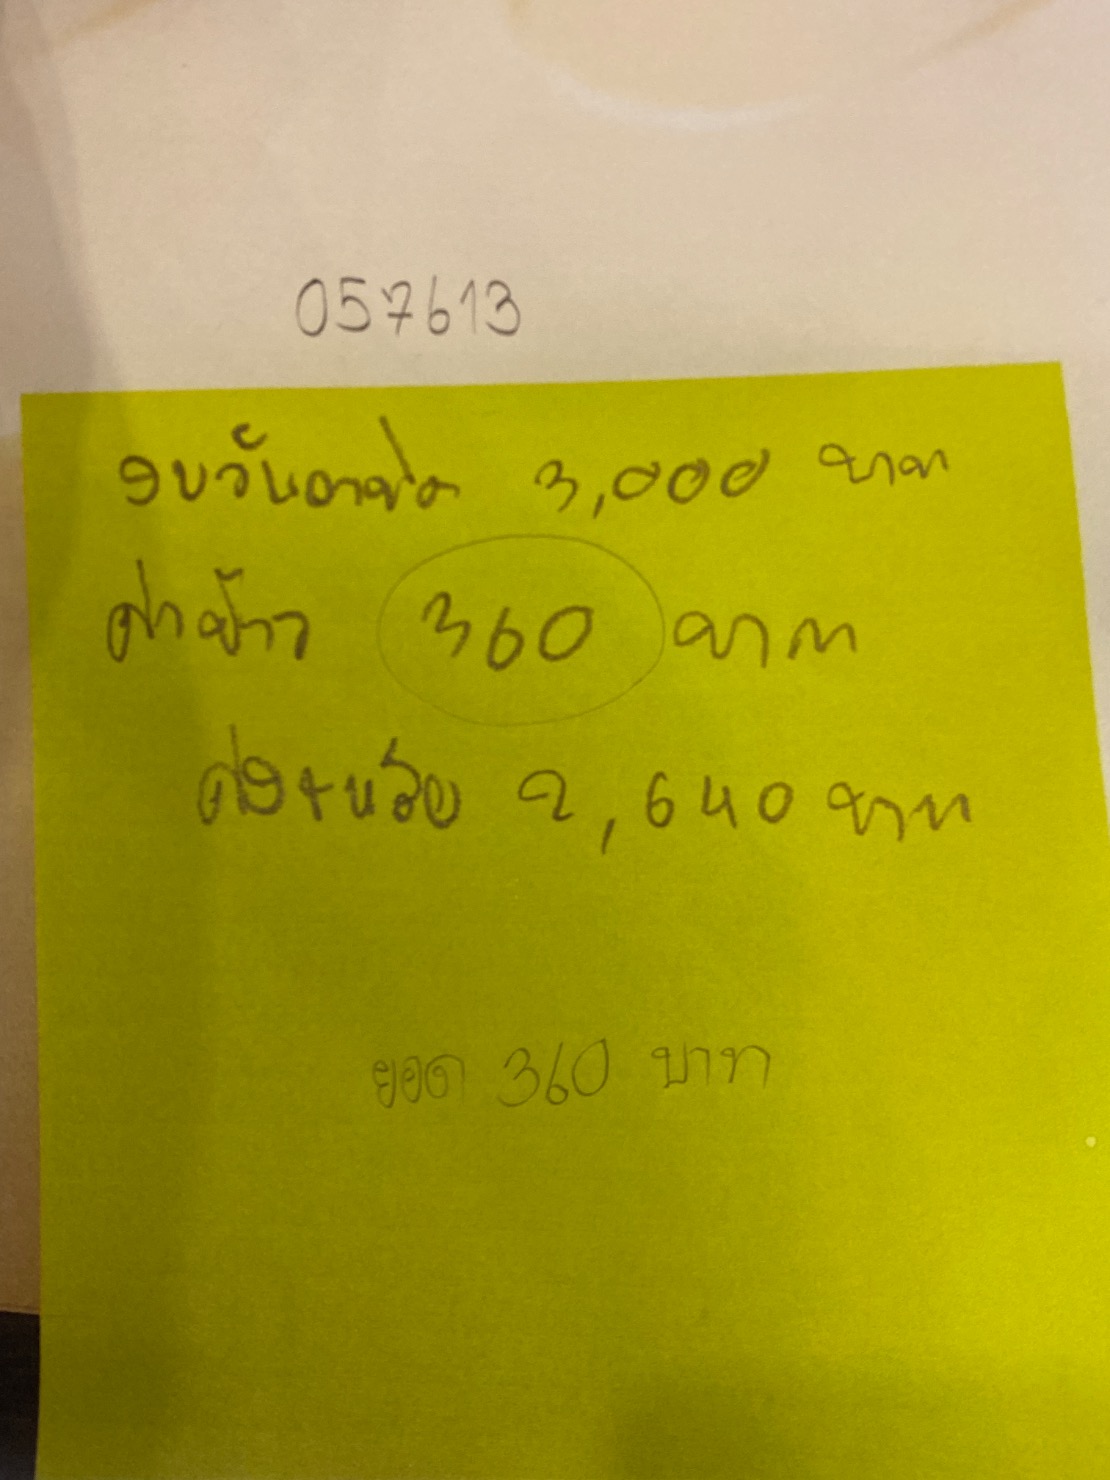 057613
งบวันอาทิตย์ 3,000 บาท
ค่าข้าว 360 บาท
คงเหลือ 2,640 บาท
ยอด 360 บาท